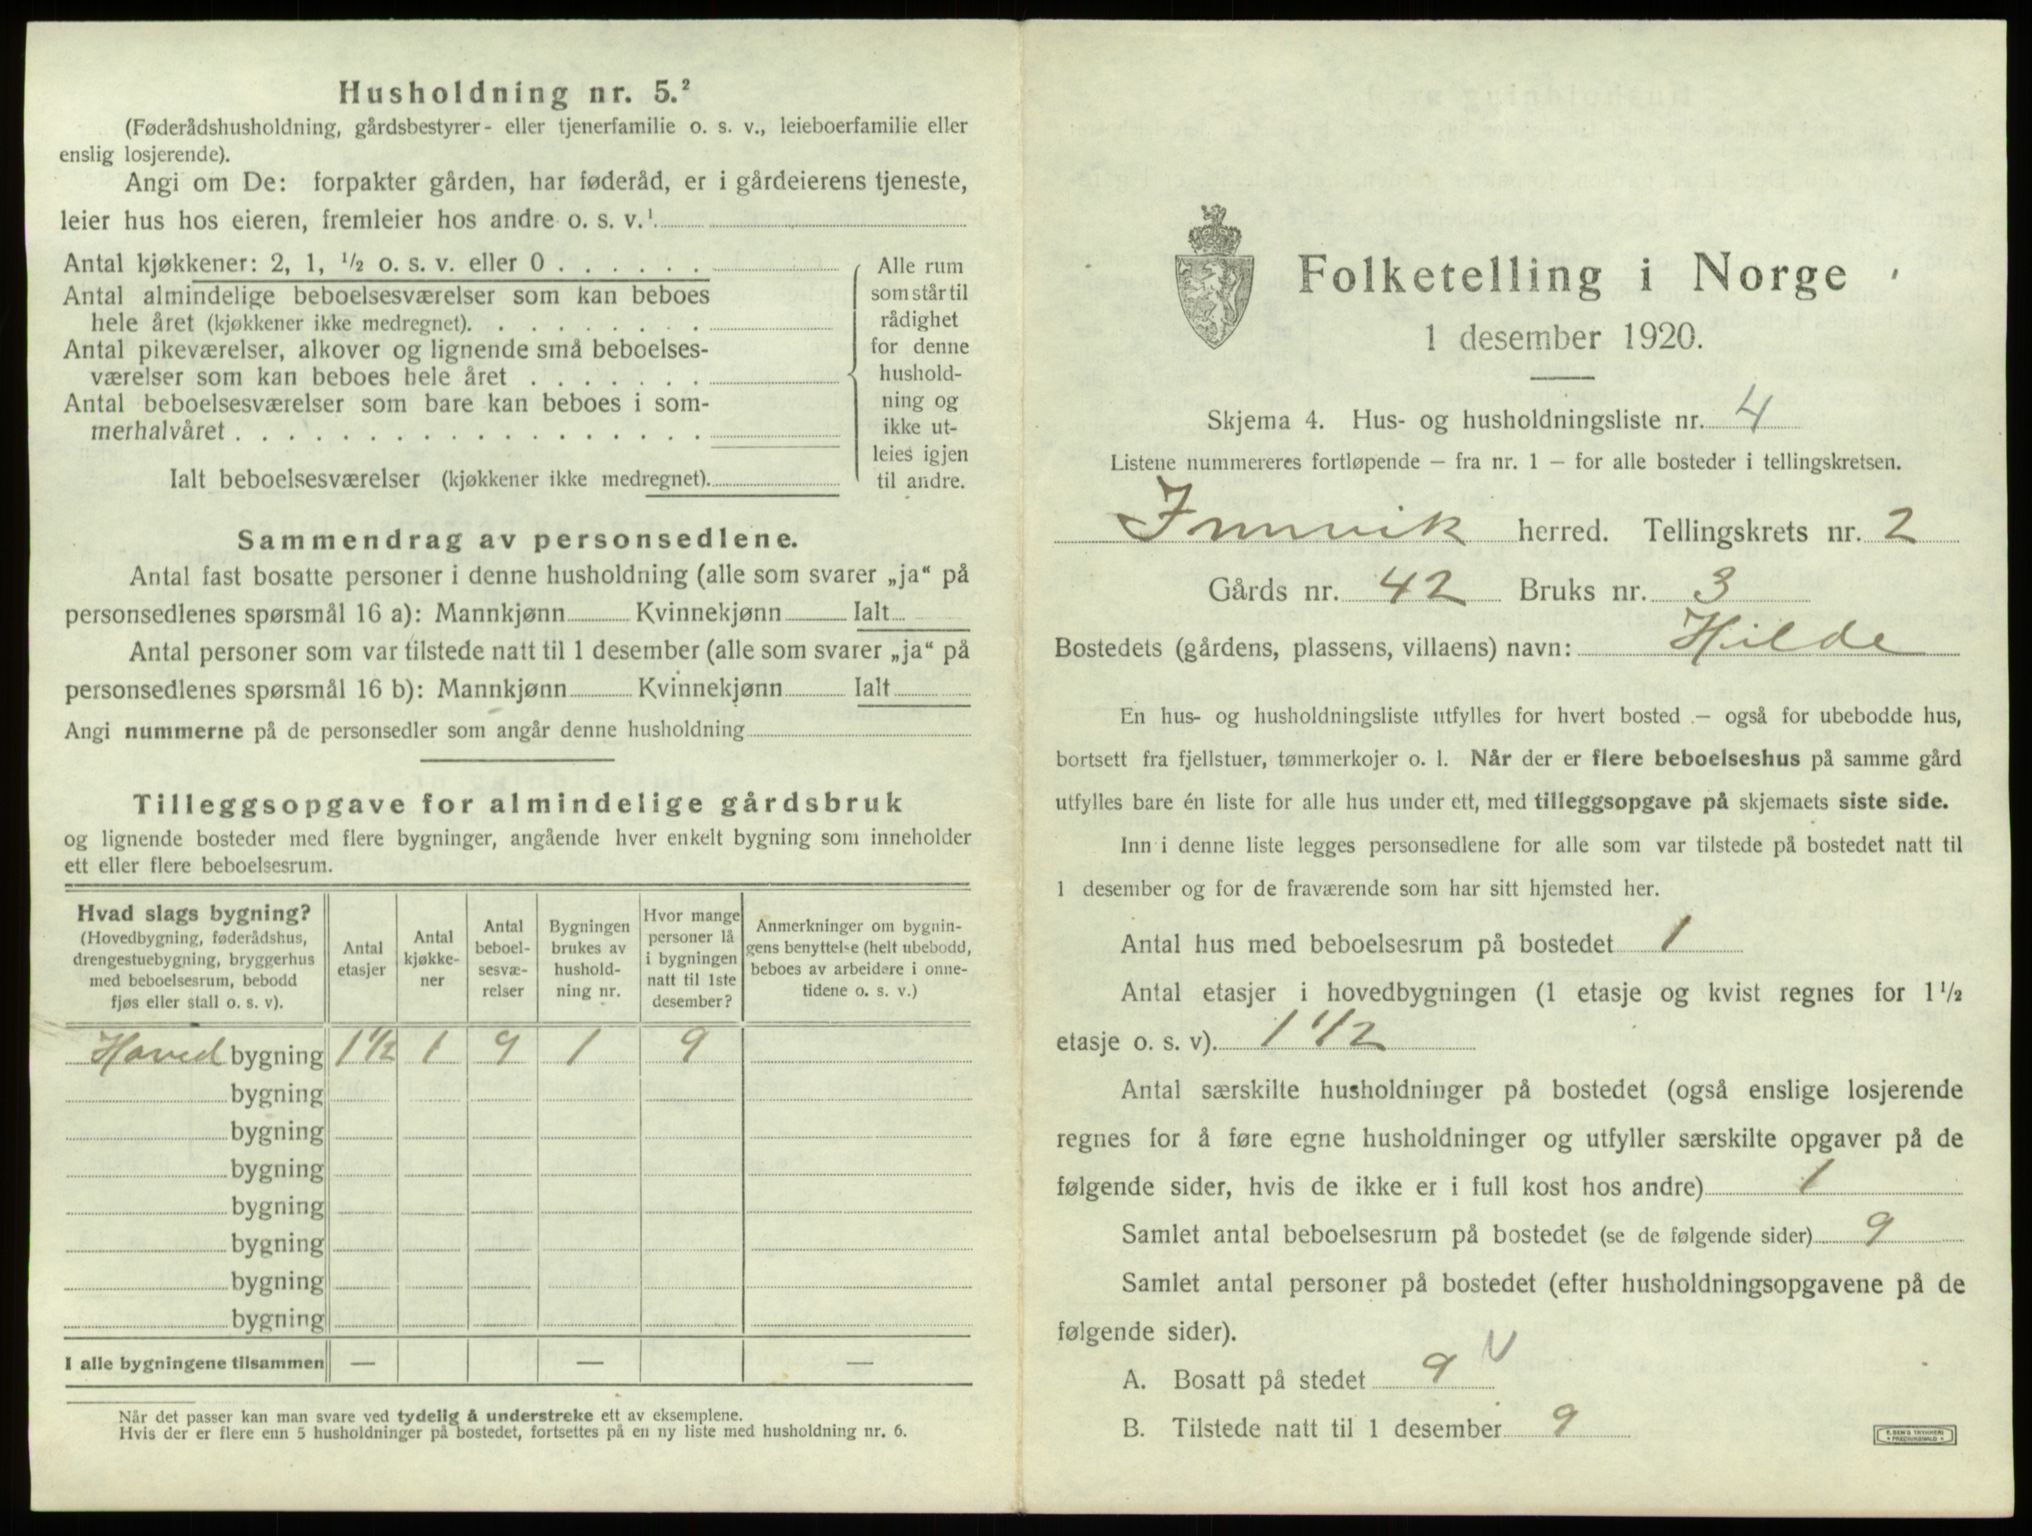 Husholdning nr. 5.²
(Føderådshusholdning, gårdsbestyrer- eller tjenerfamilie o. s. v., leieboerfamilie eller
enslig losjerende).
Angi om De: forpakter gården, har føderåd, er i gårdeierens tjeneste,
leier hus hos eieren, fremleier hos andre o. s. v.¹
Antal kjøkkener: 2, 1, ½ o. s. v. eller 0 . . . . . .
Antal almindelige beboelsesværelser som kan beboes
hele året (kjøkkener ikke medregnet). . . . . . . . .
Antal pikeværelser, alkover og lignende små beboelses-
værelser som kan beboes hele året . . . . . . .
Antal beboelsesværelser som bare kan beboes i som-
merhalvåret . . . . . . . . . . . . . . . . . .
Ialt beboelsesværelser (kjøkkener ikke medregnet).
Alle rum
som står til
rådighet
for denne
hushold-
ning og
ikke ut-
leies igjen
til andre.
Sammendrag av personsedlene.
Antal fast bosatte personer i denne husholdning (alle som svarer „ja“ på
personsedlenes spørsmål 16 a): Mannkjønn Kvinnekjønn Ialt
Antal personer som var tilstede natt til 1 desember (alle som svarer „ja“ på
personsedlenes spørsmål 16 b): Mannkjønn Kvinnekjønn Ialt
Angi nummerne på de personsedler som angår denne husholdning
Tilleggsopgave for almindelige gårdsbruk
og lignende bosteder med flere bygninger, angående hver enkelt bygning som inneholder
ett eller flere beboelsesrum.
Hvad slags bygning?
(Hovedbygning, føderådshus,
drengestuebygning, bryggerhus
med beboelsesrum, bebodd
fjøs eller stall o. s. v).
Antal
etasjer
Antal
kjøkke-
ner
Antal
beboel-
sesvæ-
relser
Bygningen
brukes av
hushold-
ning nr.
Hvor mange
personer lå
i bygningen
natt til 1ste
desember?
Anmerkninger om bygnin-
gens benyttelse (helt ubebodd,
beboes av arbeidere i onne-
tidene o. s. v.)
Hoved bygning 1 ½ 1 9 1 9
bygning
bygning
bygning
bygning
bygning
bygning
bygning
I alle bygningene tilsammen — — —
Når det passer kan man svare ved tydelig å understreke ett av eksemplene.
Hvis der er flere enn 5 husholdninger på bostedet, fortsettes på en ny liste med husholdning nr. 6.
Folketelling i Norge
1 desember 1920.
Skjema 4. Hus- og husholdningsliste nr. 4
Listene nummereres fortløpende — fra nr. 1 — for alle bosteder i tellingskretsen.
Innvik herred. Tellingskrets nr. 2
Gårds nr. 42 Bruks nr. 3
Bostedets (gårdens, plassens, villaens) navn: Hilde
En hus- og husholdningsliste utfylles for hvert bosted — også for ubebodde hus,
bortsett fra fjellstuer, tømmerkojer o. l. Når der er flere beboelseshus på samme gård
utfylles bare én liste for alle hus under ett, med tilleggsopgave på skjemaets siste side.
Inn i denne liste legges personsedlene for alle som var tilstede på bostedet natt til
1 desember og for de fraværende som har sitt hjemsted her.
Antal hus med beboelsesrum på bostedet 1
Antal etasjer i hovedbygningen (1 etasje og kvist regnes for 1 ½
etasje o. s. v). 1 1/2
Antal særskilte husholdninger på bostedet (også enslige losjerende
regnes for å føre egne husholdninger og utfyller særskilte opgaver på de
følgende sider, hvis de ikke er i full kost hos andre) 1
Samlet antal beboelsesrum på bostedet (se de følgende sider) 9
Samlet antal personer på bostedet (efter husholdningsopgavene på de
følgende sider).
A. Bosatt på stedet 9
B. Tilstede natt til 1 desember 9